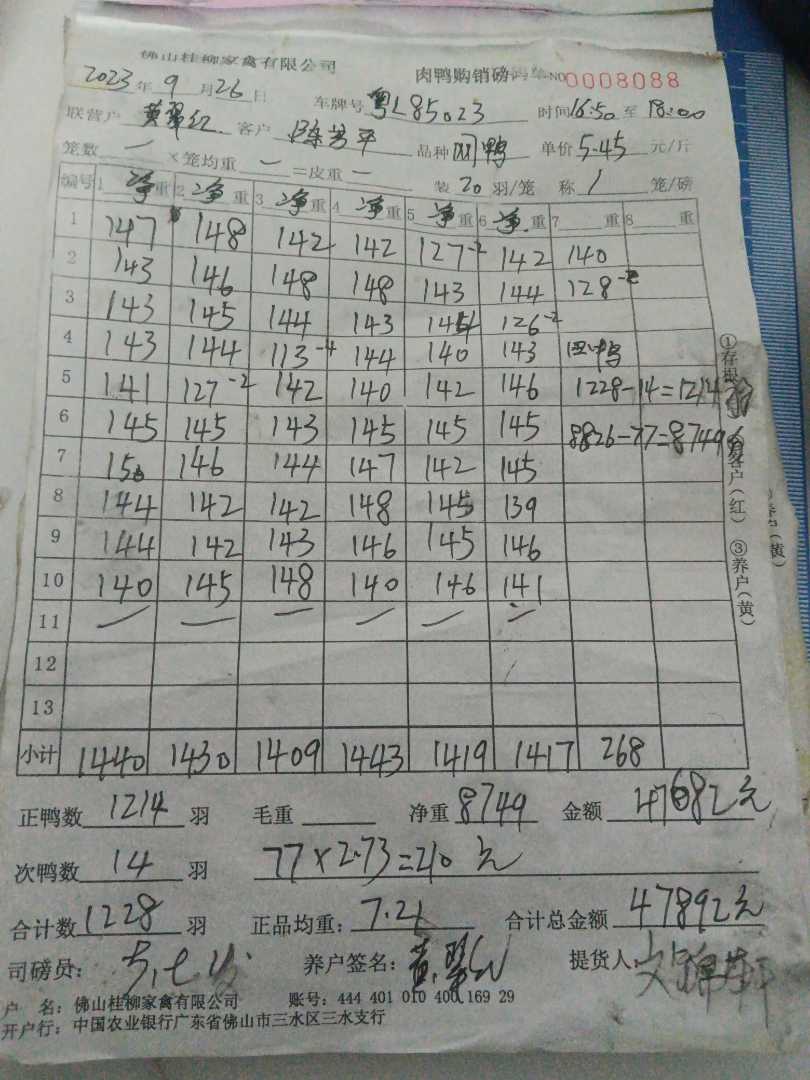 佛山桂柳家禽有限公司 肉鸭购销磅码单 NO 0008088
2023年9月26日 车牌号 粤L85023 时间16:50至18:00
联营户 黄翠红 客户 陈芳平 品种 肉鸭 单价 5.45 元/斤
笼数 一 ×笼均重 一 =皮重 一 装 20 羽/笼 称 1 笼/磅
编号 1 净重 2 净重 3 净重 4 净重 5 净重 6 净重 7 重 8 重
1 147 148 142 142 127-2 142 140
2 143 146 148 148 143 144 128-2
3 143 145 144 143 145 126-2
4 143 144 113-4 144 140 143
5 141 127-2 142 140 142 146 1228-14=1214羽
6 145 145 143 145 145 145 8826-77=8749斤
7 150 146 144 147 142 145
8 144 142 142 148 145 139
9 144 142 143 146 145 146
10 140 145 148 140 146 141
11 — — — — — —
12
13
小计 1440 1430 1409 1443 1419 1417 268
①存根 ②客户(红) ③养户(黄)
正鸭数 1214 羽 毛重 净重 8749 金额 47682元
次鸭数 14 羽 77×2.73=210元
合计数 1228 羽 正品均重: 7.21 合计总金额 47892元
司磅员: 养户签名: 黄翠红 提货人:
户 名: 佛山桂柳家禽有限公司 账号: 444 401 010 400 169 29
开户行: 中国农业银行广东省佛山市三水区三水支行